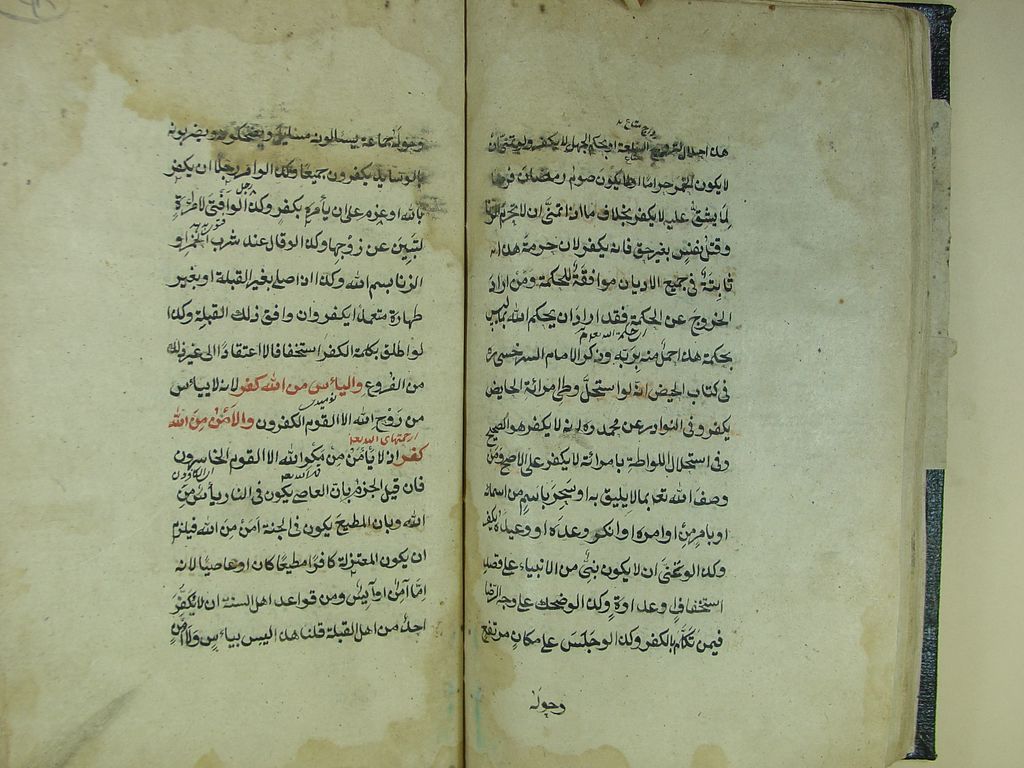 رواج متاع
هذا حلال لترويج السلعة او بحكم الجهل لا يكفر ولو تمنى ان
لا يكون الخمر حراما او لا يكون صوم رمضان فرضا
لما يشق عليه لا يكفر بخلاف ما اذا تمنى ان لا يحرم الزنا
وقتل نفس بغير حق فانه يكفر لان حرمة هذا
ثابتة في جميع الاديان موافقة للحكمة ومن اراد
الخروج عن الحكمة فقد اراد ان يحكم الله بما ليس
بحكمة هذا جهل منه بربه وذكر الامام السرخسي ره
في كتاب الحيض انه لو استحل وطئ امرأته الحايض
يكفر وفي النوادر عن محمد ره انه لا يكفر هو الصحيح
وفي استحلال اللواطة بامرأته لا يكفر على الاصح ومن
وصف الله تعا بما لا يليق به او سخر باسم من اسمائه
او بامر من اوامره او انكر وعده او وعيده يكفر
وكذا لو تمنى ان لا يكون نبى من الانبياء على قصد
استخفاف او عداوة وكذا لو ضحك على وجه الرضا
فيمن تكلم بالكفر وكذا لو جلس على مكان مرتفع
وحوله
وحوله جماعة يسئلونه مسائل ويضحكون ويضربونه
بالوسايد يكفرون جميعا وكذا لو امر رجلا ان يكفر
بالله او عزم على ان يأمره بكفر وكذا لو افتى لامرأة
لتبين عن زوجها وكذا لو قال عند شرب الخمر او
الزنا بسم الله وكذا اذا صلى بغير القبلة او بغير
طهارة متعمدا يكفر وان وافق ذلك القبلة وكذا
لو اطلق بكلمة الكفر استخفافا لا اعتقادا الى غير ذلك
من الفروع والياس من الله كفر لانه لا ييأس
من روح الله الا القوم الكفرون والامن من الله
كفر اذ لا يأمن من مكر الله الا القوم الخاسرون
فان قيل الجزم بان العاصي يكون في النار يأس من
الله وبان المطيع يكون في الجنة امن من الله فيلزم
ان يكون المعتزلة كافرا مطيعا كان او عاصيا لانه
اما آمن او آيس ومن قواعد اهل السنة ان لا يكفر
احد من اهل القبلة قلنا هذا ليس بيأس ولا امن